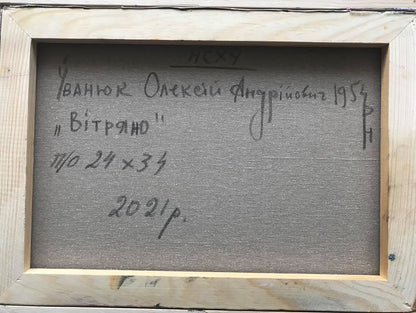 НСХУ
Іванюк Олексій Андрійович 1954 рн
„Вітряно"
п/о 24 х 34
2021р.